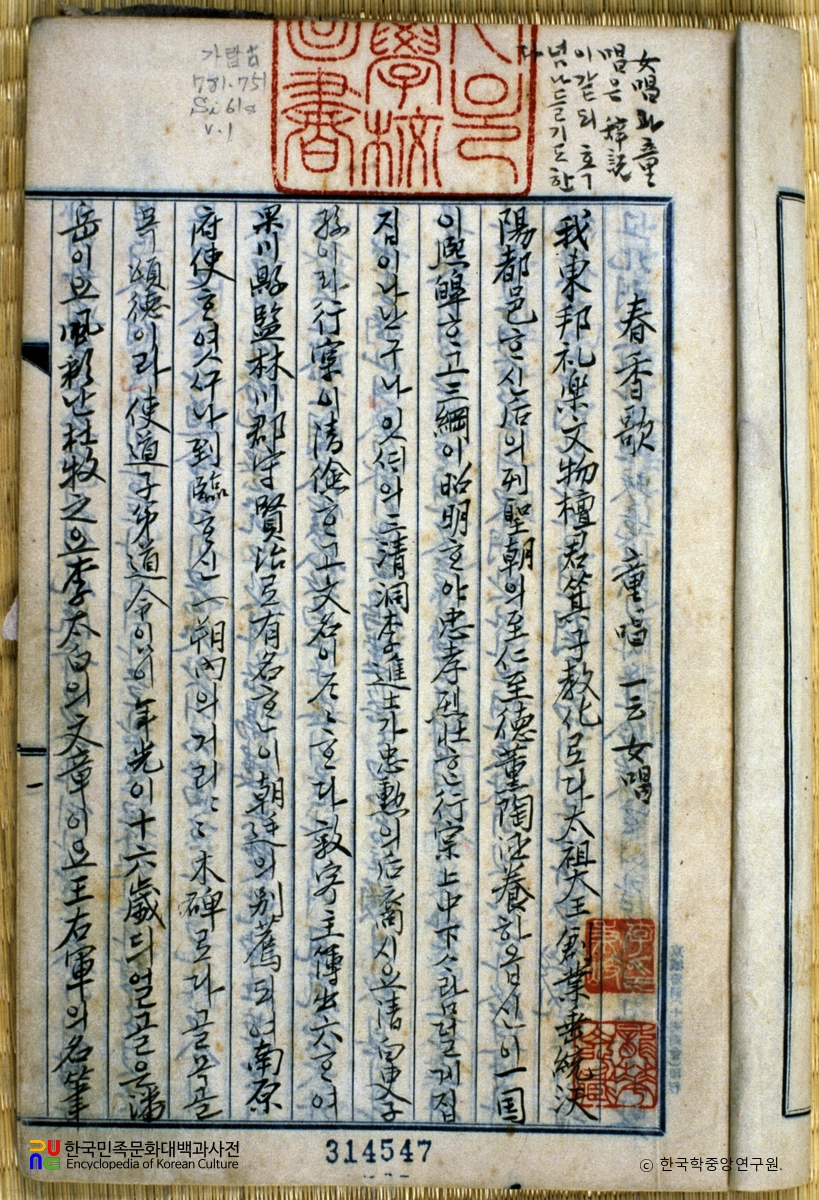 女唱과童
唱은 解說
이같되 혹
넘나들기도 한
다
가람古
781.751
Si61a
v.1
春香歌 童唱 一云 女唱
我東邦礼樂文物檀君箕子敎化로다太祖大王創業垂統決
陽都邑ᄒᆞ신后의列聖朝의至仁至德薰陶涵養하옵신이一国
이熙皥ᄒᆞ고三綱이昭明ᄒᆞ야忠孝烈壯ᄒᆞᆫ行宗上中下사람덜게집
집이나난구나잇ᄯᆡ의三清洞李進士가忠勳의后裔시요清白吏子
孫이라行 이清儉ᄒᆞ고文名이 ᄒᆞ다敦寧主簿出六ᄒᆞ여
果川縣監林川郡守賢治로有名ᄒᆞ니朝廷의別薦되야南原
府使ᄒᆞ엿구나到臨ᄒᆞ신一朔內의거리〻〻木碑로다골목골
목頌德이라使道子弟道令임이年光이十六歲듸얼골은潘
岳이요風彩난杜牧之요李太白의文章이요王右軍의名筆
314547
한국민족문화대백과사전
Encyclopedia of Korean Culture
© 한국학중앙연구원.